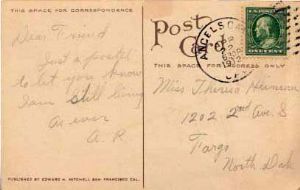 THIS SPACE FOR CORRESPONDENCE
Dear Friend
Just a postal
to let you know
I am still living
As ever
A. R.
PUBLISHED BY EDWARD H. MITCHELL SAN FRANCISCO CAL.
Post
THIS SPACE FOR THE ADDRESS
Miss Theresa Heimann
1202 2nd Ave. S
Fargo
North Dak
CAL
ONE CENT